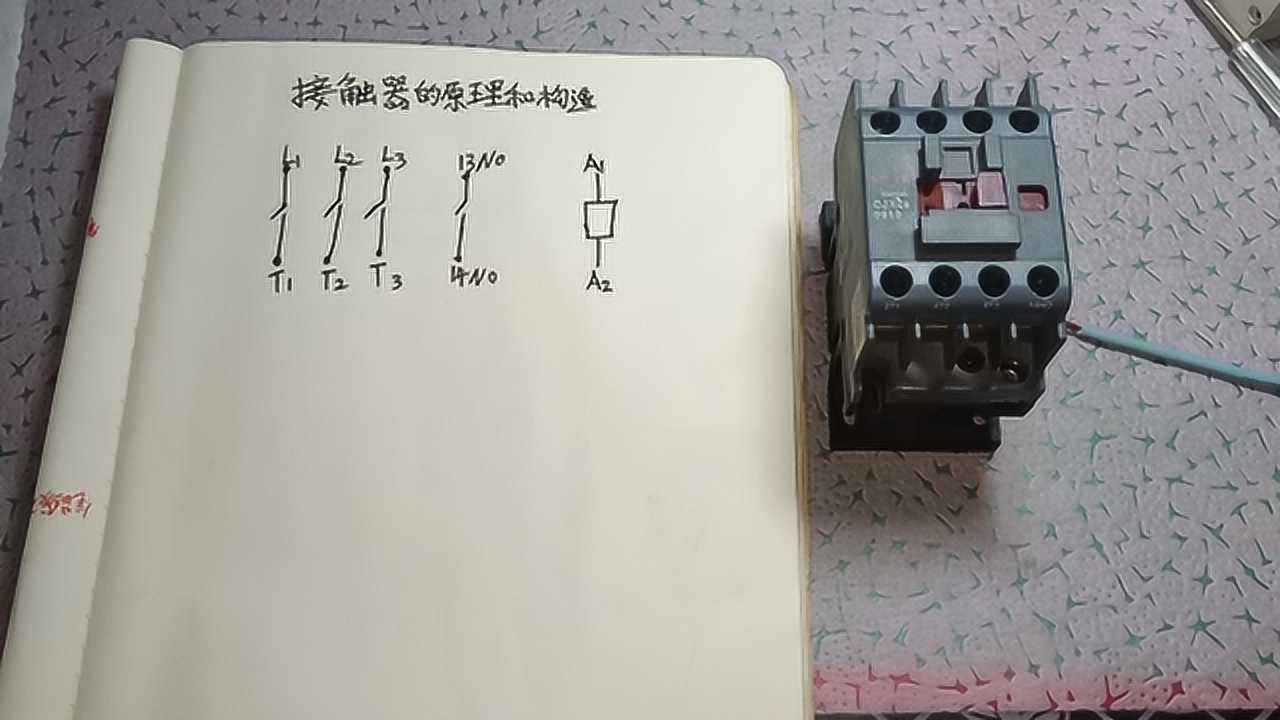 接触器的原理和构造
L1 L2 L3 13NO A1
T1 T2 T3 14NO A2